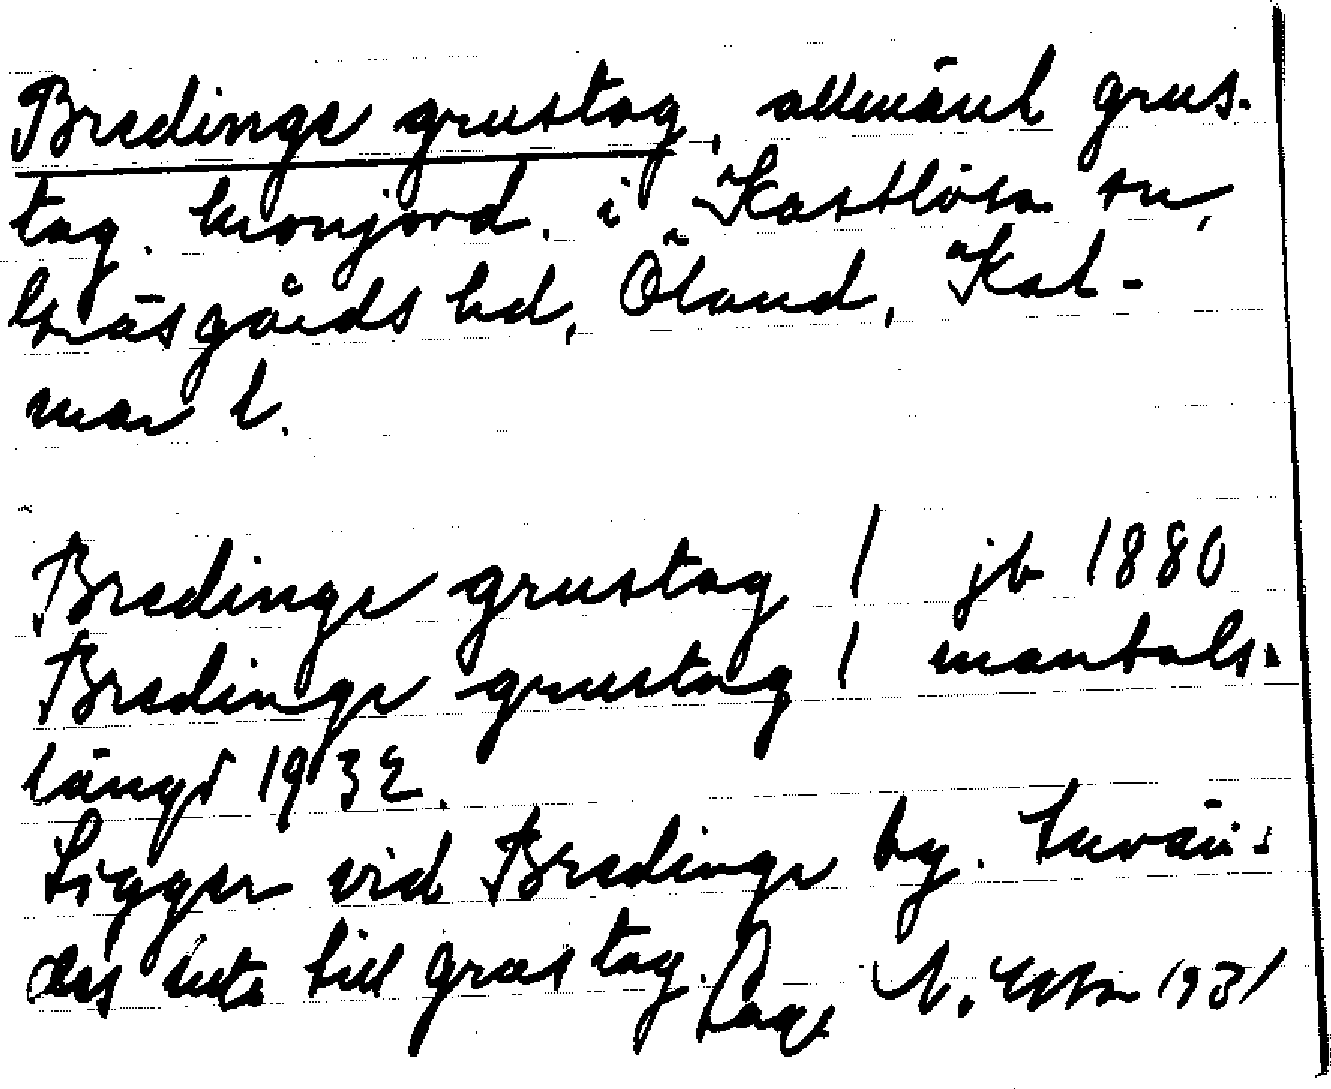 Bredinge grustag, allmänt grus-
tag. kronjord. i Kastlösa sn,
Gräsgårds hd, Öland, Kal-
mar l.
Bredinge grustag / jb 1880
Bredinge grustag / mantals-
längd 1932.
Ligger vid Bredinge by. Använ-
des inte till grustag.
1931